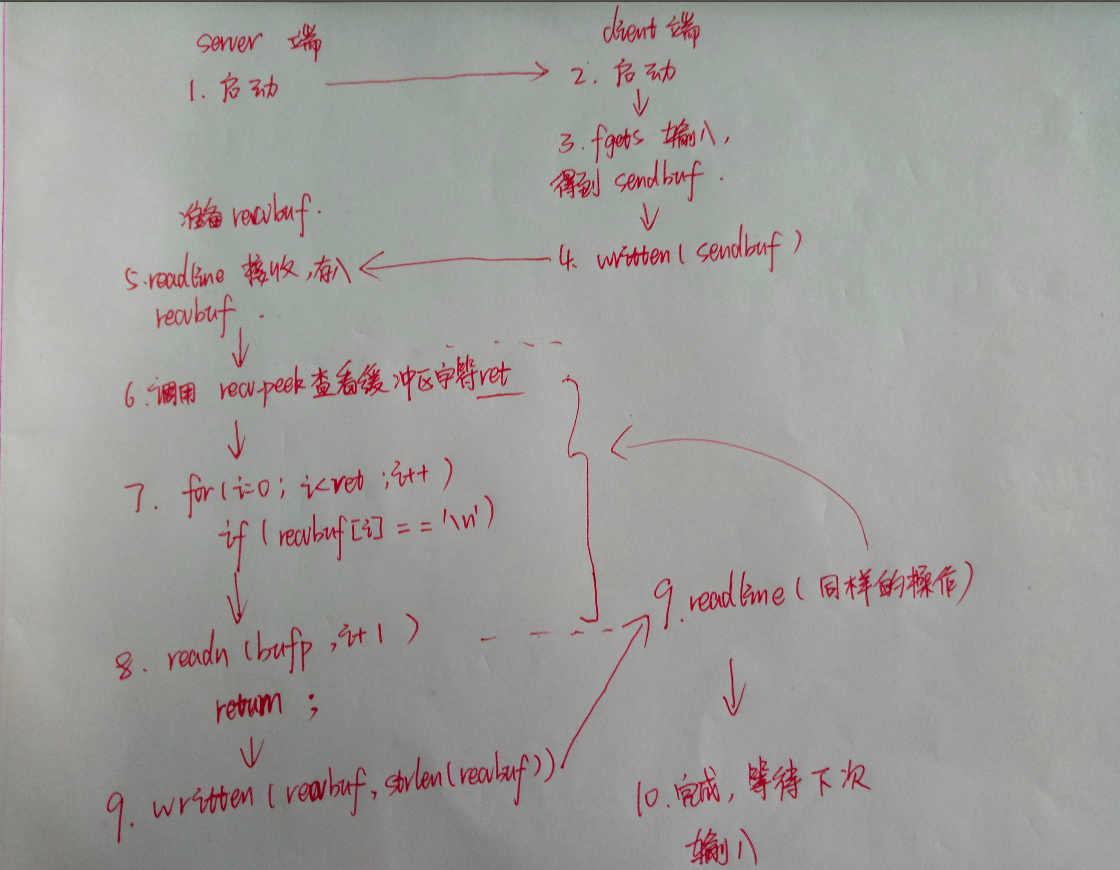 server 端
client 端
1. 启动
2. 启动
3. fgets 输入,
得到 sendbuf .
准备 recvbuf.
4. written( sendbuf )
5. readline 接收,存入
recvbuf .
6. 调用 recv-peek 查看缓冲区字符ret
7. for(i=0; i<ret ;i++)
if ( recvbuf[i] == '\n')
8. readn (bufp ,i+1 )
return ;
9. readline ( 同样的操作)
9. written (recvbuf, strlen(recvbuf))
10. 完成, 等待下次
输入